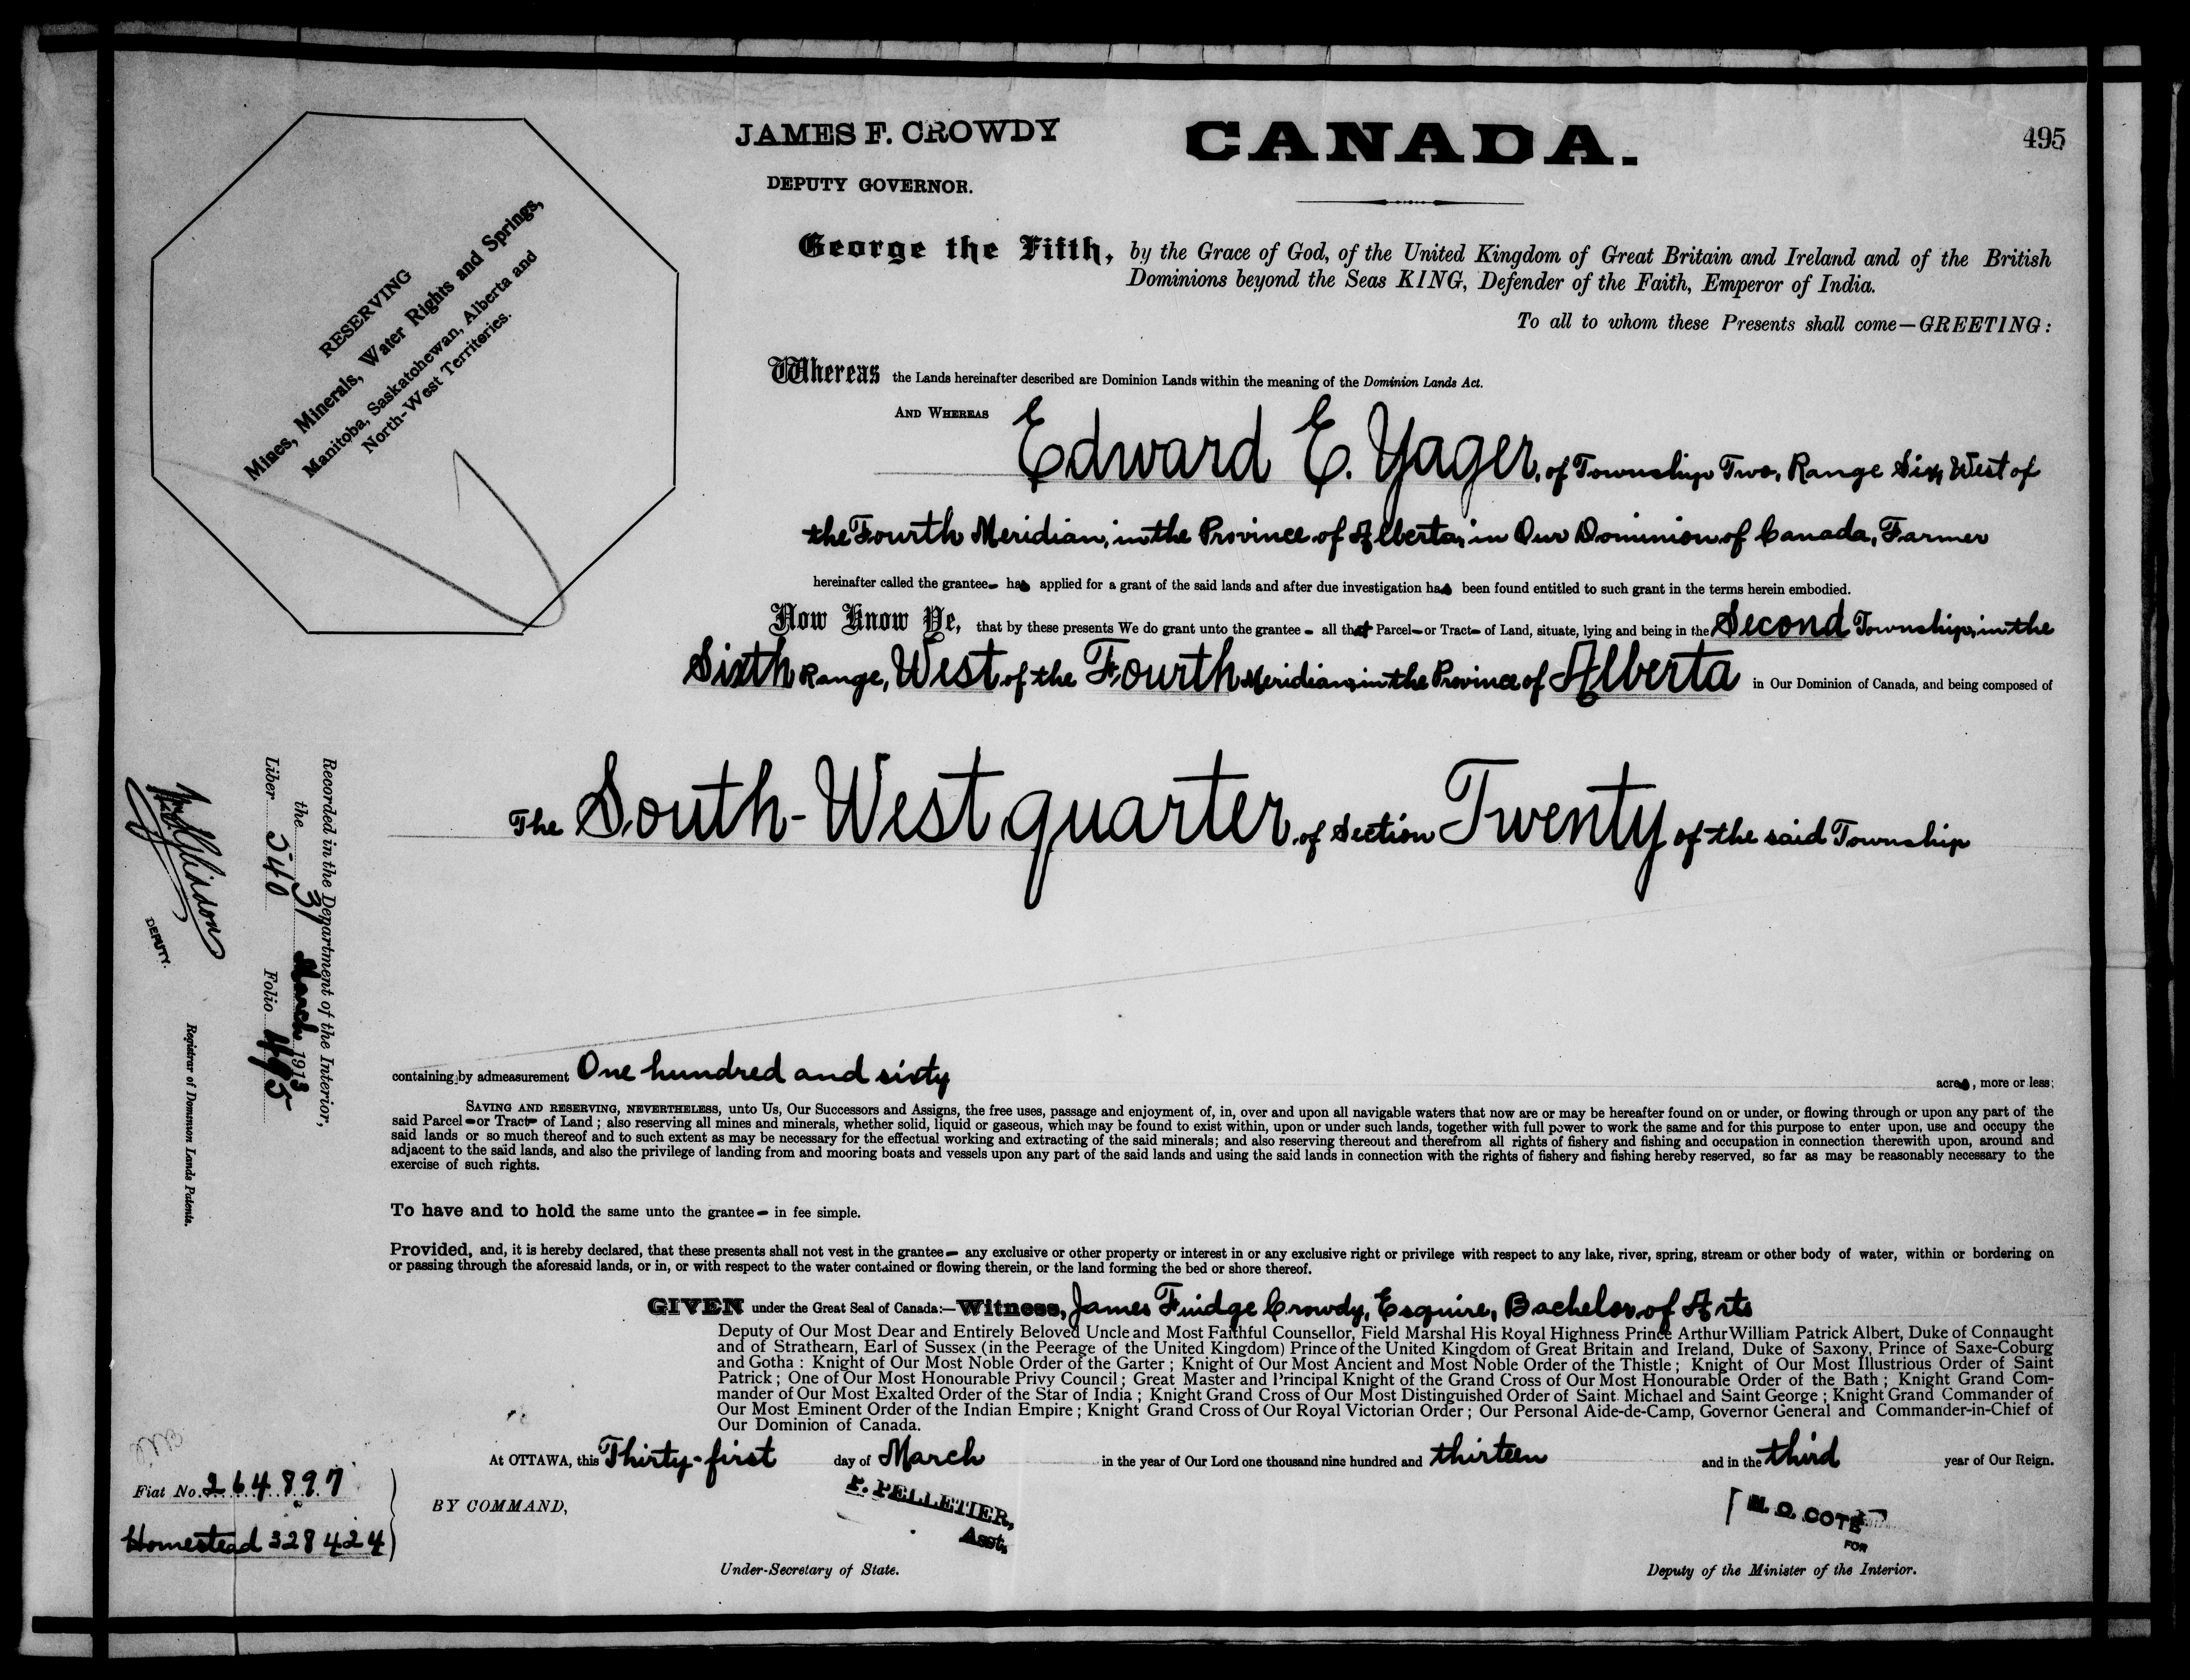 JAMES F. CROWDY
DEPUTY GOVERNOR.
CANADA.
495
RESERVING
Mines, Minerals, Water Rights and Springs,
Manitoba, Saskatchewan, Alberta and
North-West Territories.
George the Fifth, by the Grace of God, of the United Kingdom of Great Britain and Ireland and of the British
Dominions beyond the Seas KING, Defender of the Faith, Emperor of India.
To all to whom these Presents shall come—GREETING:
Whereas the Lands hereinafter described are Dominion Lands within the meaning of the Dominion Lands Act.
AND WHEREAS Edward E. Yager, of Township Two, Range Six, West of
the Fourth Meridian, in the Province of Alberta, in Our Dominion of Canada, Farmer
hereinafter called the grantee- has applied for a grant of the said lands and after due investigation has been found entitled to such grant in the terms herein embodied.
Now Know Ye, that by these presents We do grant unto the grantee - all that Parcel-or Tract- of Land, situate, lying and being in the Second Township, in the
Sixth Range, West of the Fourth Meridian, in the Province of Alberta in Our Dominion of Canada, and being composed of
The South-West quarter of Section Twenty of the said Township
containing by admeasurement One hundred and sixty acres, more or less;
SAVING AND RESERVING, NEVERTHELESS, unto Us, Our Successors and Assigns, the free uses, passage and enjoyment of, in, over and upon all navigable waters that now are or may be hereafter found on or under, or flowing through or upon any part of the
said Parcel-or Tract- of Land; also reserving all mines and minerals, whether solid, liquid or gaseous, which may be found to exist within, upon or under such lands, together with full power to work the same and for this purpose to enter upon, use and occupy the
said lands or so much thereof and to such extent as may be necessary for the effectual working and extracting of the said minerals; and also reserving thereout and therefrom all rights of fishery and fishing and occupation in connection therewith upon, around and
adjacent to the said lands, and also the privilege of landing from and mooring boats and vessels upon any part of the said lands and using the said lands in connection with the rights of fishery and fishing hereby reserved, so far as may be reasonably necessary to the
exercise of such rights.
To have and to hold the same unto the grantee- in fee simple.
Provided, and, it is hereby declared, that these presents shall not vest in the grantee- any exclusive or other property or interest in or any exclusive right or privilege with respect to any lake, river, spring, stream or other body of water, within or bordering on
or passing through the aforesaid lands, or in, or with respect to the water contained or flowing therein, or the land forming the bed or shore thereof.
GIVEN under the Great Seal of Canada:—Witness, James Fuidge Crowdy, Esquire, Bachelor of Arts
Deputy of Our Most Dear and Entirely Beloved Uncle and Most Faithful Counsellor, Field Marshal His Royal Highness Prince Arthur William Patrick Albert, Duke of Connaught
and of Strathearn, Earl of Sussex (in the Peerage of the United Kingdom) Prince of the United Kingdom of Great Britain and Ireland, Duke of Saxony, Prince of Saxe-Coburg
and Gotha: Knight of Our Most Noble Order of the Garter; Knight of Our Most Ancient and Most Noble Order of the Thistle; Knight of Our Most Illustrious Order of Saint
Patrick; One of Our Most Honourable Privy Council; Great Master and Principal Knight of the Grand Cross of Our Most Honourable Order of the Bath; Knight Grand Com-
mander of Our Most Exalted Order of the Star of India; Knight Grand Cross of Our Most Distinguished Order of Saint Michael and Saint George; Knight Grand Commander of
Our Most Eminent Order of the Indian Empire; Knight Grand Cross of Our Royal Victorian Order; Our Personal Aide-de-Camp, Governor General and Commander-in-Chief of
Our Dominion of Canada.
At OTTAWA, this Thirty-first day of March in the year of Our Lord one thousand nine hundred and thirteen and in the third year of Our Reign.
BY COMMAND,
F. PELLETIER,
Asst.
Under-Secretary of State.
N. O. COTE
FOR
Deputy of the Minister of the Interior.
Recorded in the Department of the Interior,
the 31 March 1913
Liber 540 Folio 495
DEPUTY.
Registrar of Dominion Lands Patents.
Fiat No. 264897
Homestead 328424